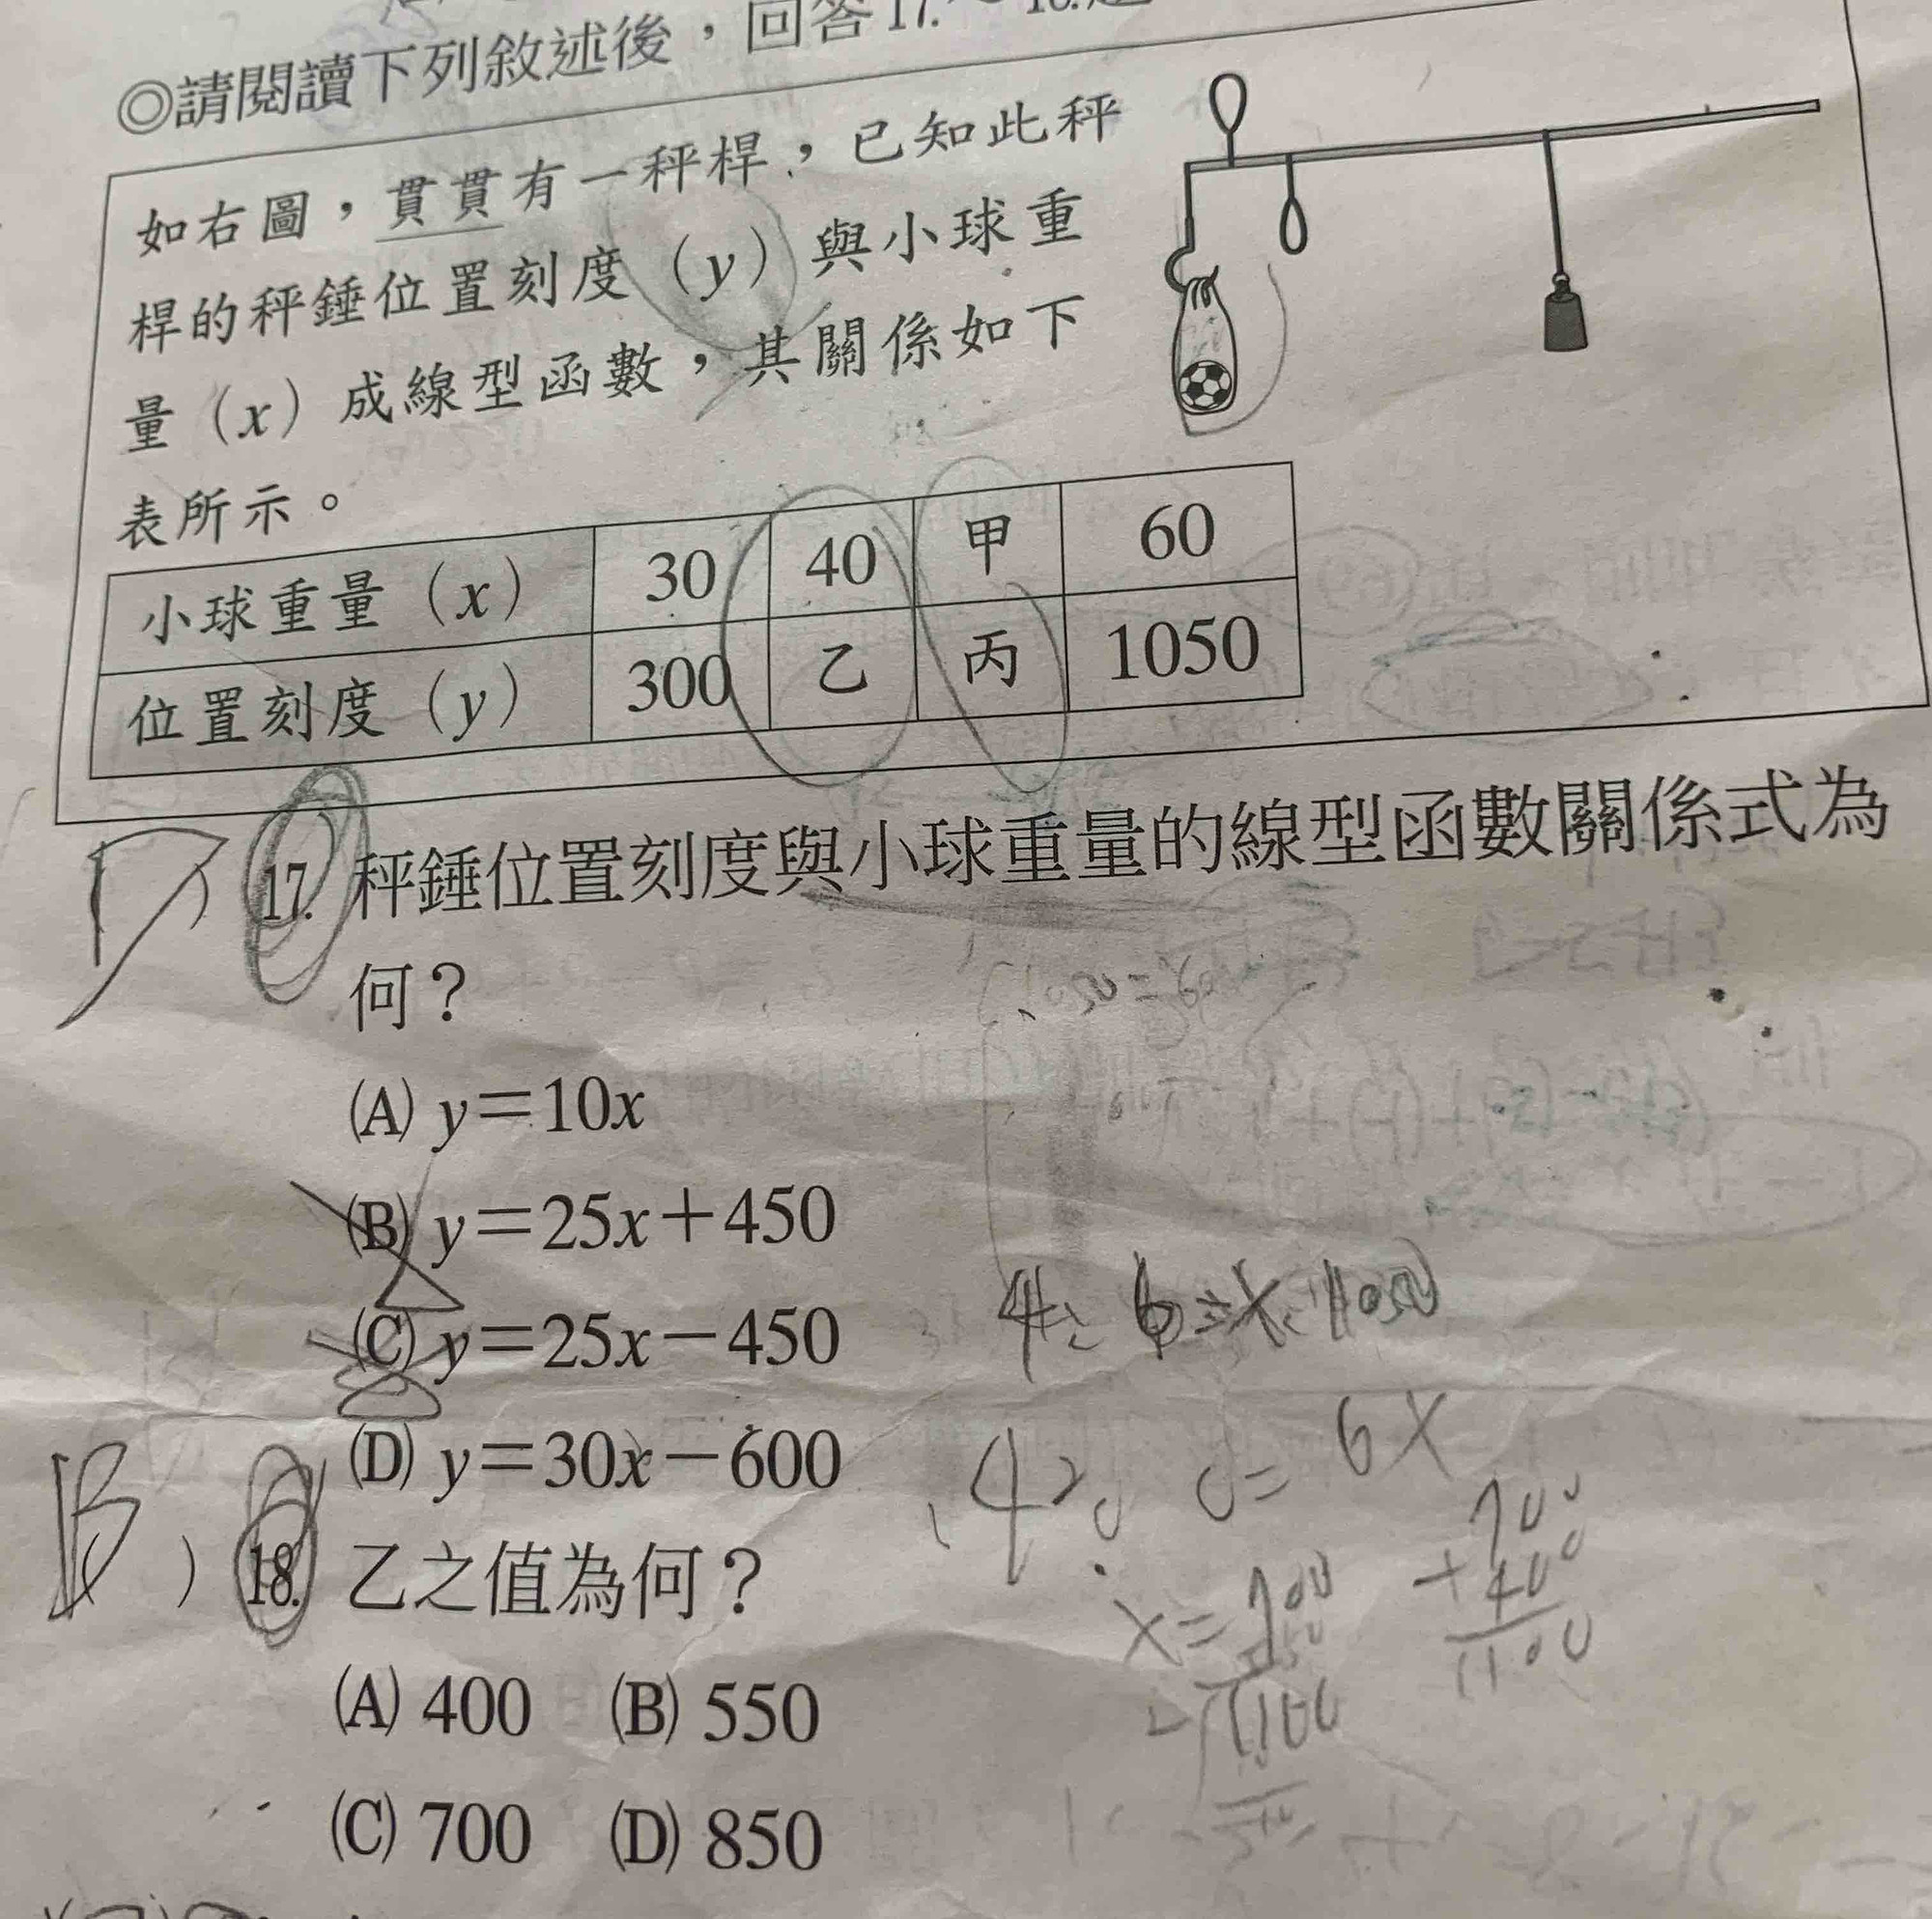 ◎請閱讀下列敘述後，回答17.
如右圖，貫貫有一秤桿，已知此秤
桿的秤錘位置刻度（y）與小球重
量（x）成線型函數，其關係如下
表所示。
小球重量（x） 30 40 甲 60
位置刻度（y） 300 乙 丙 1050
17. 秤錘位置刻度與小球重量的線型函數關係式為
何？
(A) y＝10x
(B) y＝25x＋450
(C) y＝25x－450
(D) y＝30x－600
420 0 = 6X
700
+ 400
1100
B ) 18. 乙之值為何？
(A) 400 (B) 550
(C) 700 (D) 850